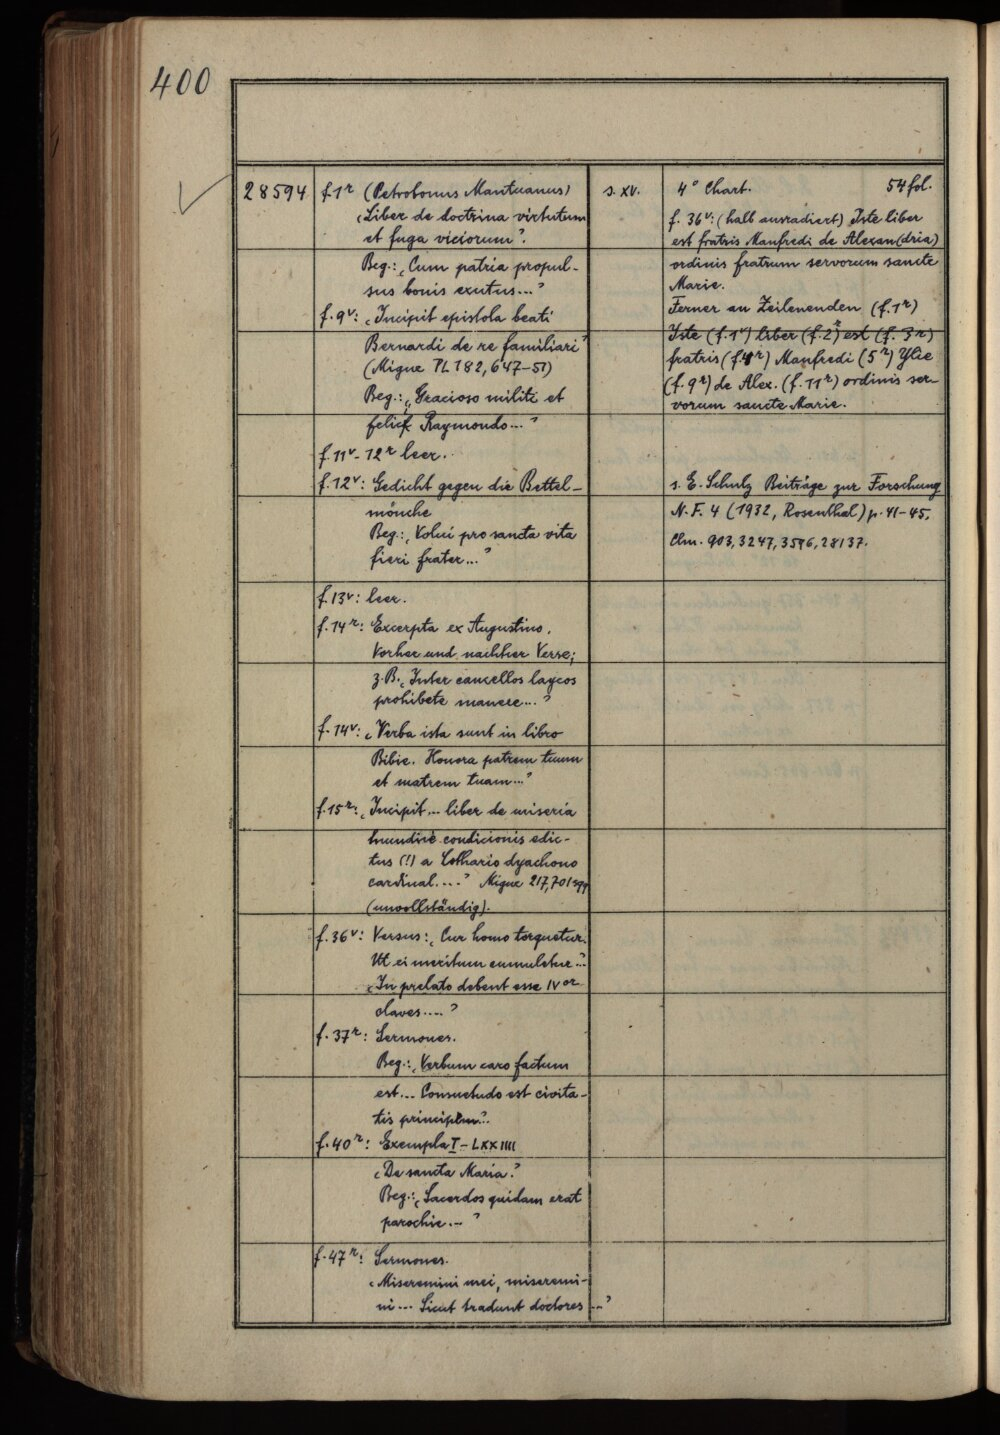 400
28594
f.1r (Petrobonus Mantuanus)
‚Liber de doctrina virtutum
et fuga viciorum‘.
Beg.: ‚Cum patria propul-
sus bonis exutus...‘
f.9v: ‚Incipit epistola beati
Bernardi de re familiari‘
(Migne PL 182, 647-51)
Beg.: ‚Gracioso militi et
felici Raymondo...‘
f.11v-12r leer.
f.12v: Gedicht gegen die Bettel-
mönche
Beg.: ‚Volui pro sancta vita
fieri frater...‘
f.13v: leer.
f.14r: Excerpta ex Augustino.
Vorher und nachher Verse;
z.B. ‚Inter cancellos laycos
prohibete manere...‘
f.14v: ‚Verba ista sunt in libro
Bibie. Honora patrem tuum
et matrem tuam...‘
f.15r: ‚Incipit... liber de miseria
condicionis edic-
tus (!) a Lothario dyachono
cardinal....‘ Migne 217, 701 sqq
(unvollständig).
f.36v: Versus: ‚Cur homo torquetur.
Ut ei meritum cumuletur...‘
‚In prelato debent esse IVor
claves....‘
f.37r: Sermones.
Beg.: ‚Verbum caro factum
est... Consuetudo est civita-
tis principum‘...
f.40r: Exempla I-LXXIIII
‚De sancta Maria.‘
Beg.: ‚Sacerdos quidam erat
parochie.-‘
f.47r: Sermones.
‚Miseremini mei, miseremi-
ni... Sicut tradunt doctores...‘
s. XV.
4° Chart. 54 fol.
f. 36v: (halb ausradiert) Iste liber
est fratris Manfredi de Alexan(dria)
ordinis fratrum servorum sancte
Marie.
Ferner an Zeilenenden (f.1r)
Iste (f.1v) liber (f.2r) est (f.3r)
fratris (f.4r) Manfredi (5r) Ylie
(f.9r) de Alex. (f.11r) ordinis ser-
vorum sancte Marie.
s. E. Schulz Beiträge zur Forschung
N.F. 4 (1932, Rosenthal) p. 41-45.
Clm. 903, 3247, 3596, 28137.